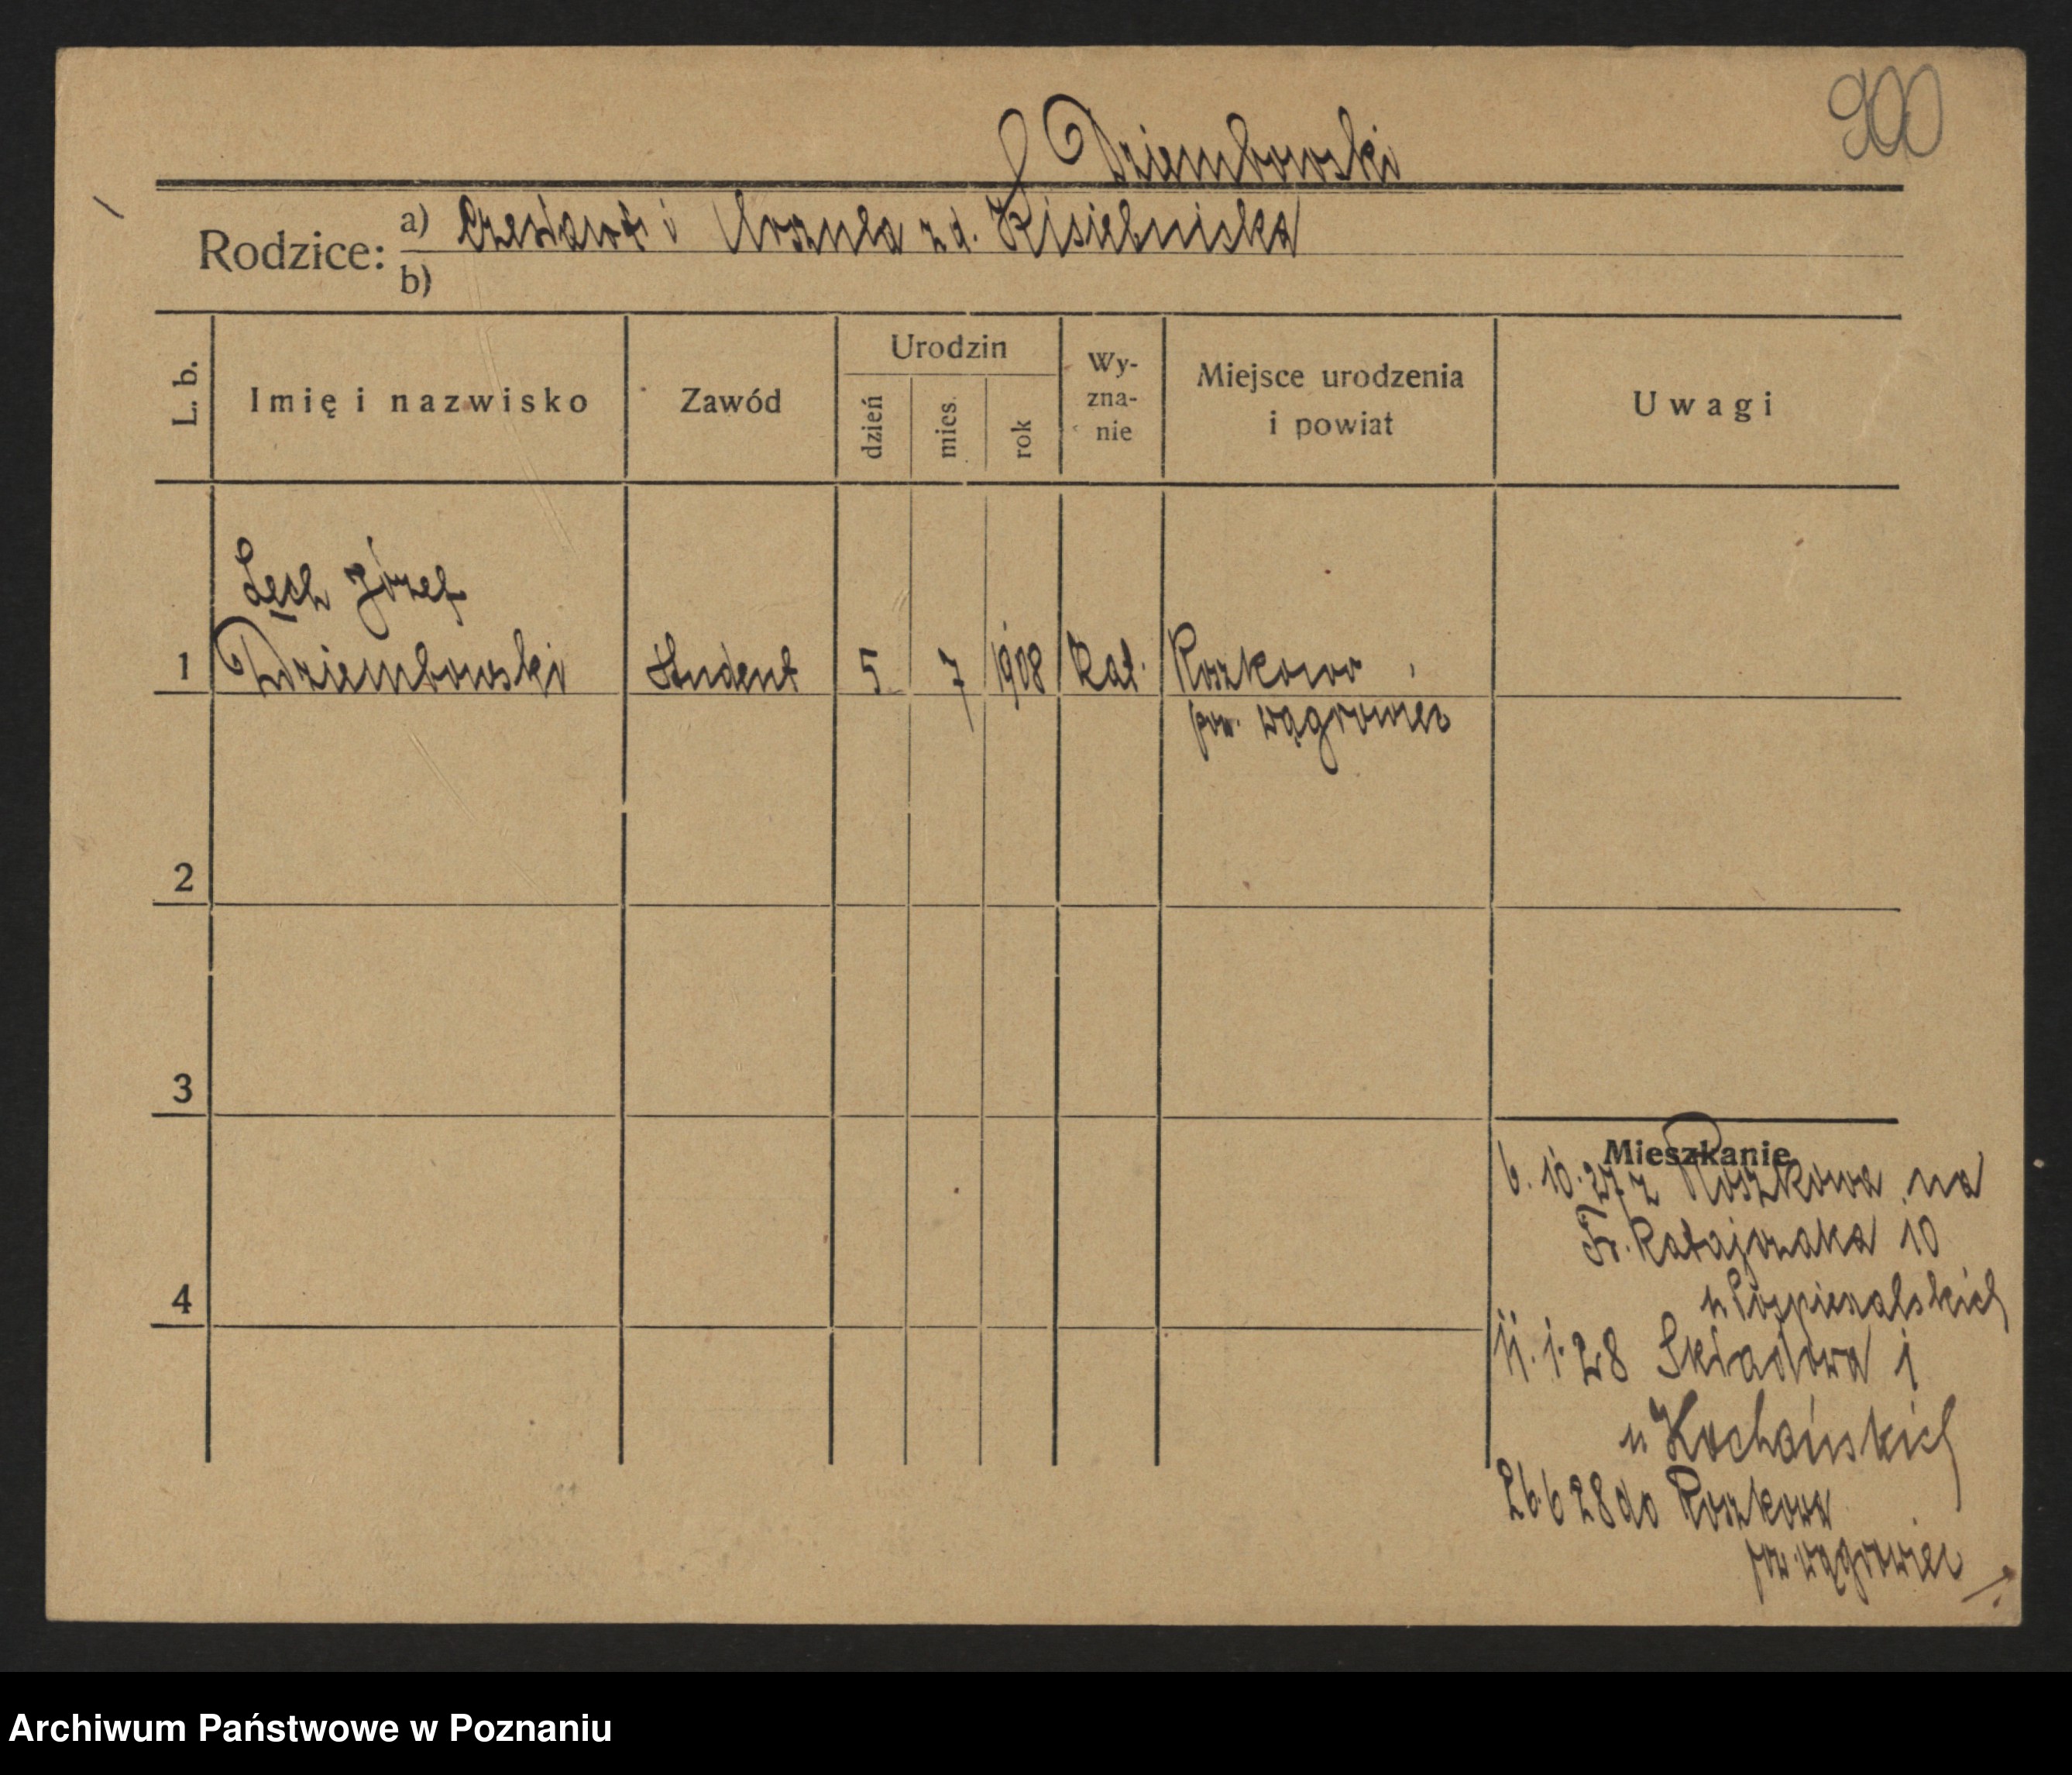 900
Dziembowski
Rodzice: a) Czesław i Urszula z d. Kisielnicka
b)
L. b.
Imię i nazwisko
Zawód
Urodzin
dzień
mies.
rok
Wy-
zna-
nie
Miejsce urodzenia
i powiat
Uwagi
Lech Józef
1 Dziembowski Student 5 7 1908 kat. Roszkowo
pow. wągrowiec
2
3
4
Mieszkanie
6.10.27 z Roszkowa na
Fr. Ratajczaka 10
u
11.1.28 Składowa 1
u Kochańskich
26 6 28 do Roszkowa
pow. wągrowiec
Archiwum Państwowe w Poznaniu